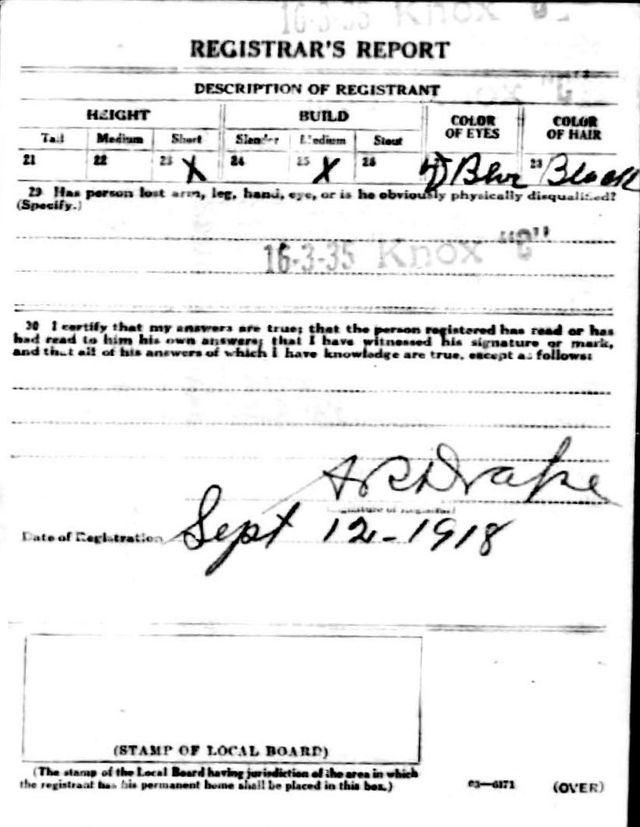 16-3-35 Knox
REGISTRAR'S REPORT
DESCRIPTION OF REGISTRANT
HEIGHT BUILD COLOR OF EYES COLOR OF HAIR
Tall Medium Short Slender Medium Stout
21 22 23 X 24 25 X 26 Blue 28 Black
29 Has person lost arm, leg, hand, eye, or is he obviously physically disqualified?
(Specify.)
16-3-35 Knox "C"
30 I certify that my answers are true; that the person registered has read or has
had read to him his own answers; that I have witnessed his signature or mark,
and that all of his answers of which I have knowledge are true, except as follows:
Drake
Signature of Registrar
Date of Registration Sept 12-1918
(STAMP OF LOCAL BOARD)
(The stamp of the Local Board having jurisdiction of the area in which
the registrant has his permanent home shall be placed in this box.)
03—6171 (OVER)